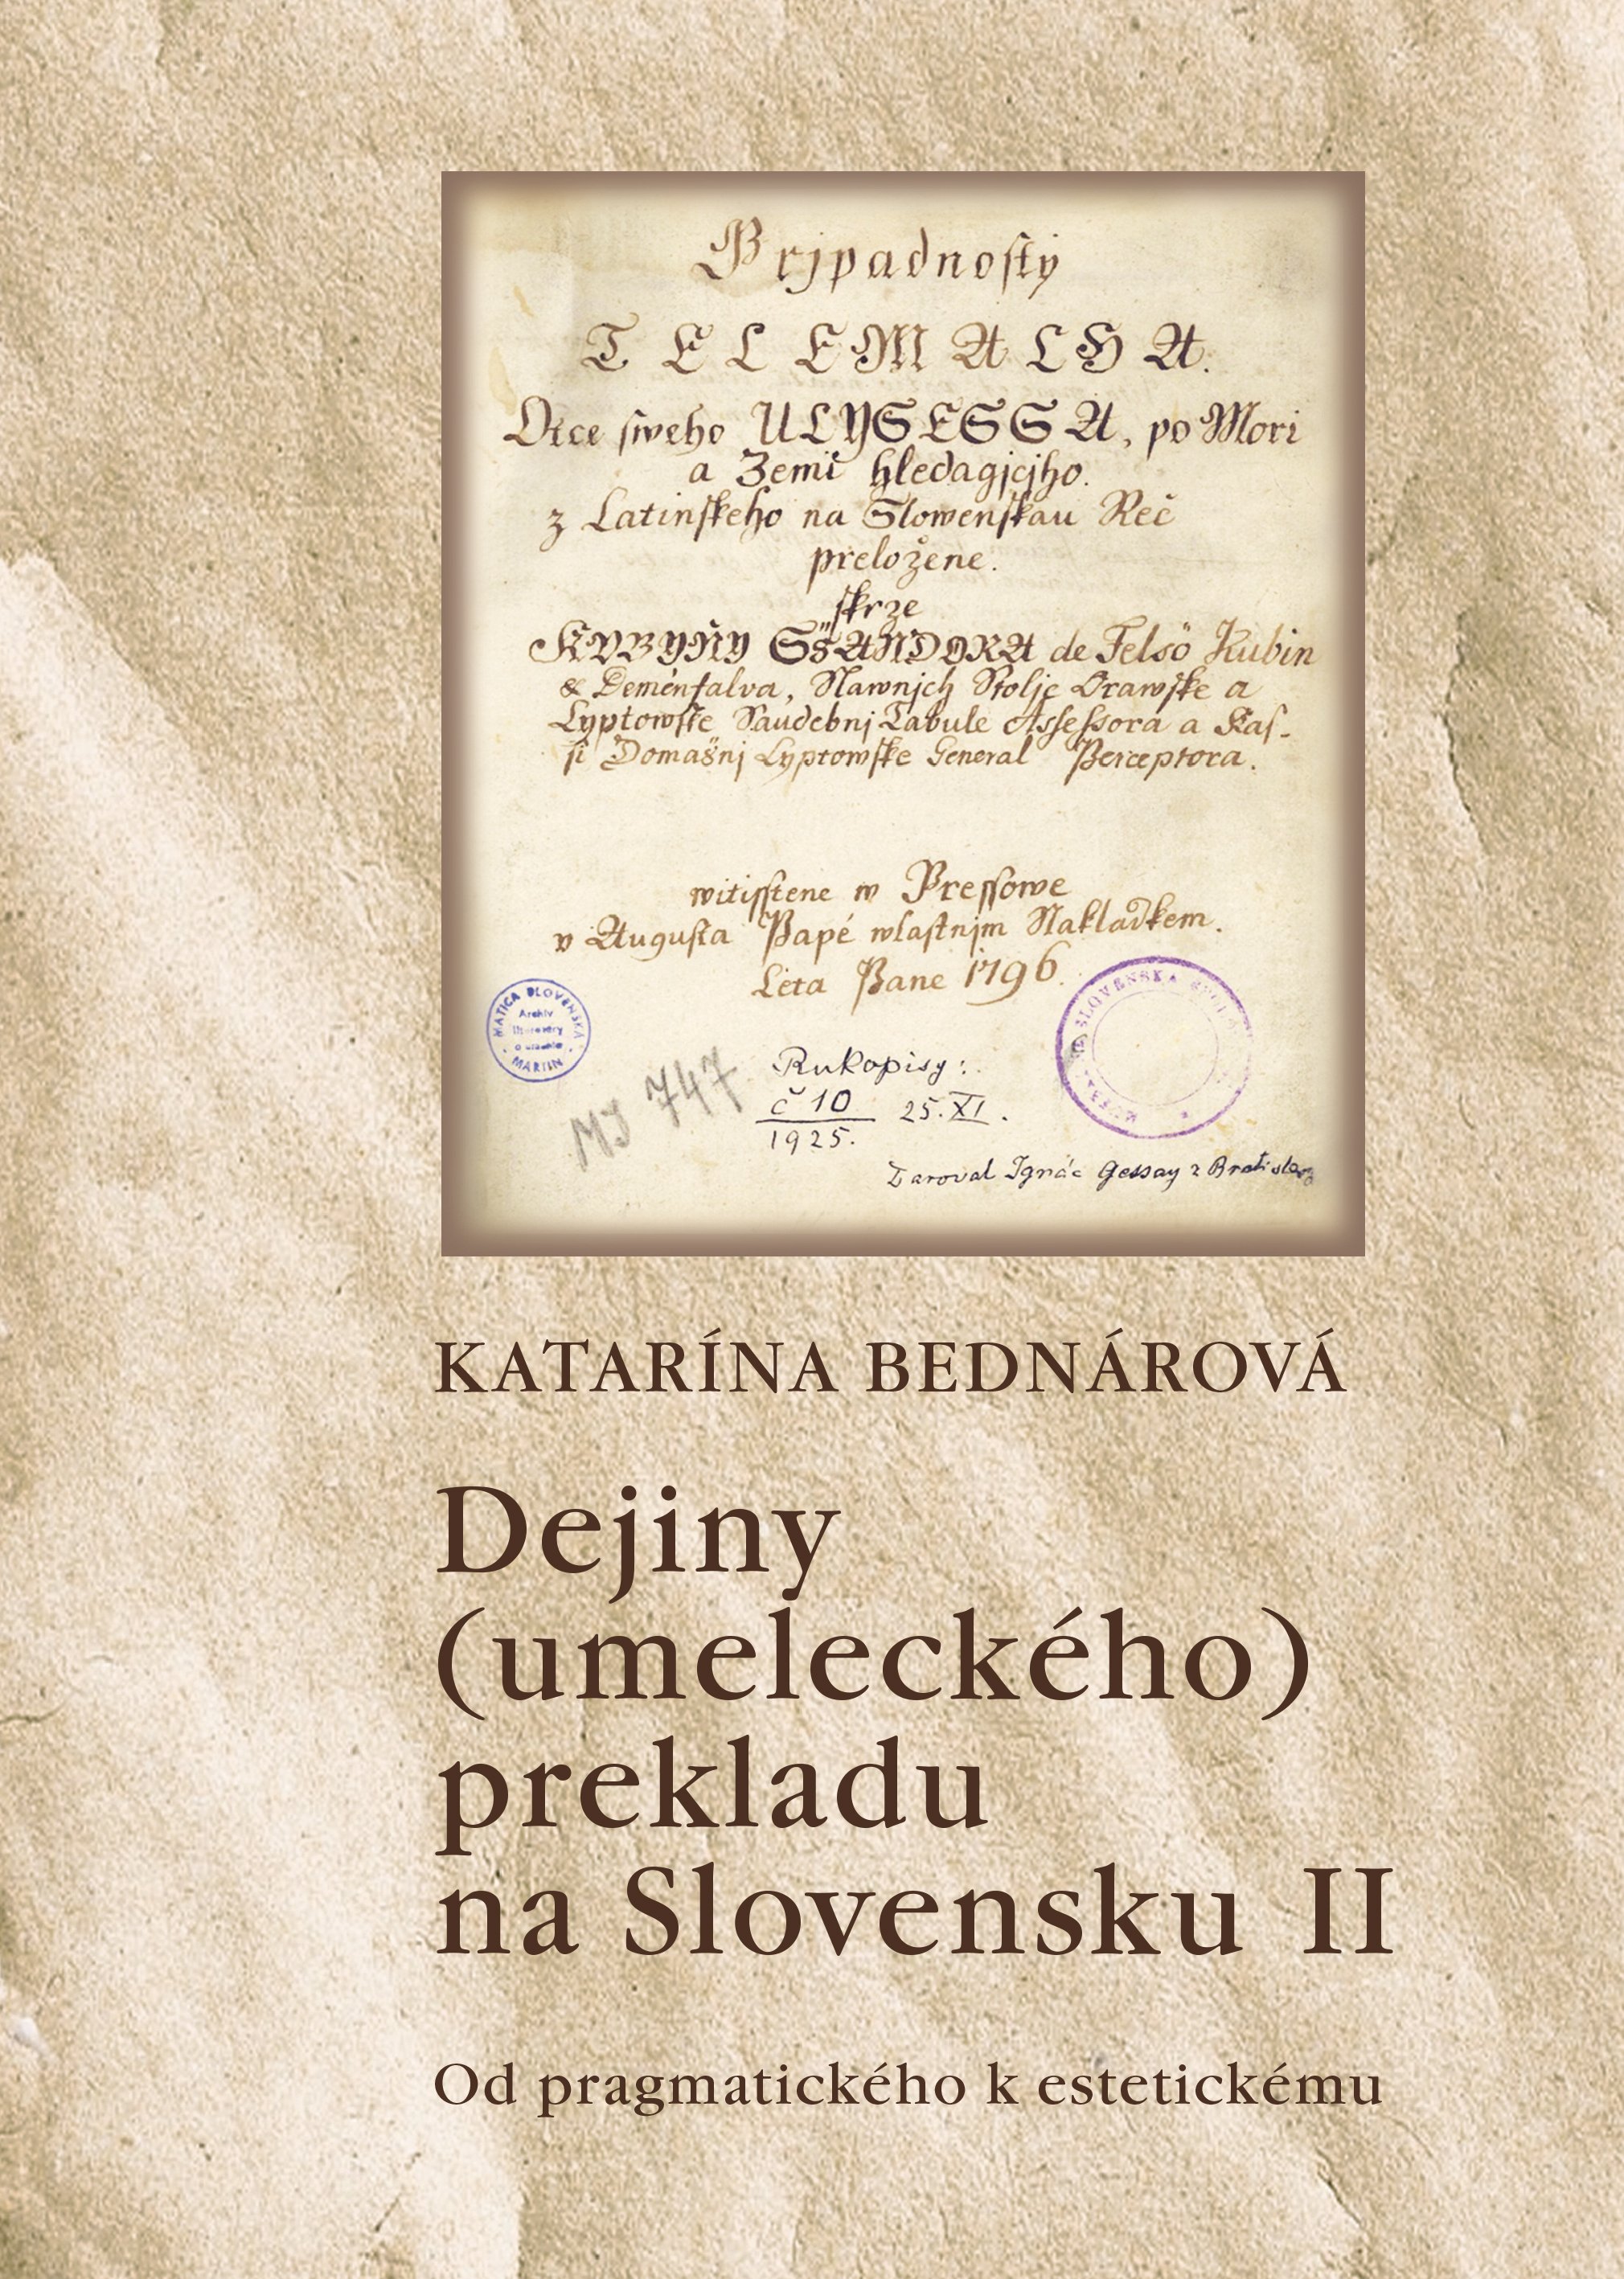 Prjpadnosty
TELEMACHA.
Otce sweho ULYSESSA, po Mori
a Zemi hledagjcjho.
z Latinskeho na Slowenskau Reč
preložene.
skrze
KUBYNY SSANDORA de Felsö Kubin
& Deménfalva, Slawnjch Stolje Orawske a
Lyptowske Saudebnj Tabule Assessora a Kas-
si Domassnj Lyptowske General Perceptora.
witisstene w Pressowe
v Augusta Papé wlastnjm Nakladkem.
Leta Pane 1796.
MATICA SLOVENSKÁ
Archív
literárny
MARTIN
SLOVENSKÁ
MJ 747
Rukopisy:
č 10 25.XI.
1925.
Daroval Ignác Gessay z Bratislavy
KATARÍNA BEDNÁROVÁ
Dejiny
(umeleckého)
prekladu
na Slovensku II
Od pragmatického k estetickému